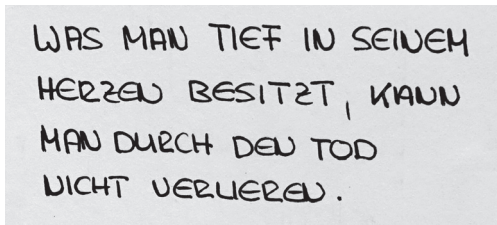 WAS MAN TIEF IN SEINEM
HERZEN BESITZT, KANN
MAN DURCH DEN TOD
NICHT VERLIEREN.